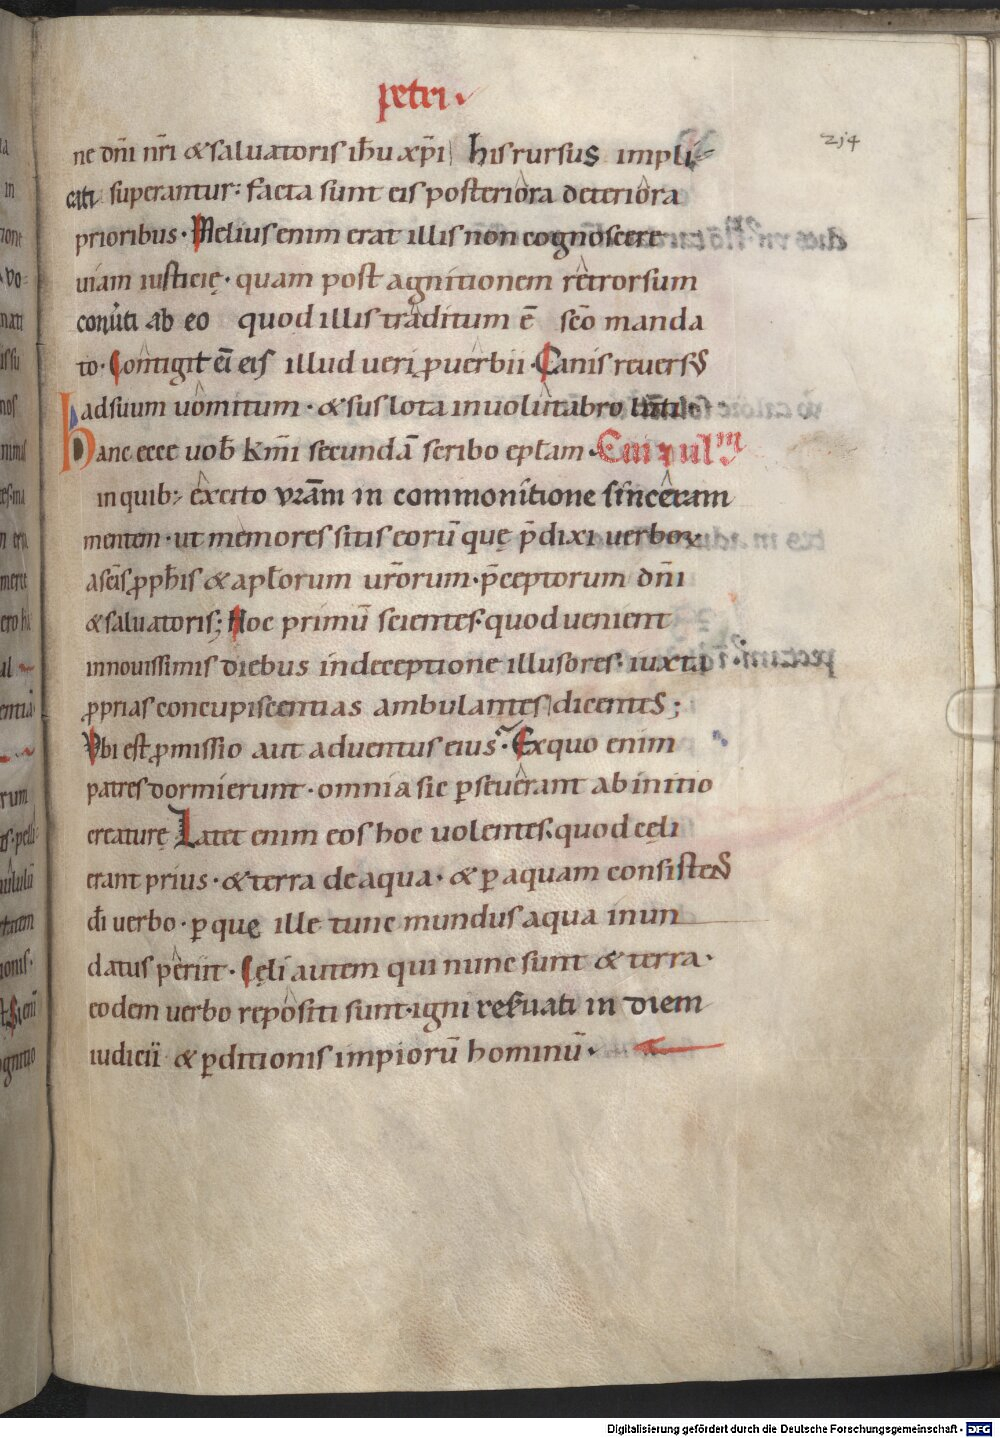 petri.
ne dn̄i nr̄i & saluatoris ih̄u xp̄i hisrursus impli
234
cati superantur: facta sunt eis posteriora deteriora
prioribus. Melius enim erat illis non cognoscere
uiam iusticię. quam post agnitionem retrorsum
conũti ab eo quod illis traditum ē sc̄o manda
to. Contigit eī eis illud ueri ꝓuerbii. Canis reuersꝰ
adsuum uomitum. & sus lota inuolutabro luti.
hanc ecce uob̄ km̄i secundā scribo epl̄am.
inquib; excito vr̄am in commonitione sinceram
mentem. ut memores sitis eorū quę p̄dixi uerboꝝ
asc̄is ꝓph̄is & apl̄orum ur̄orum. p̄ceptorum dn̄i
& saluatoris; Hoc primū scientes. quod uenient
innouissimis diebus indeceptione illusores. iuxta
ꝓprias concupiscentias ambulantes dicentes;
Vbi est ꝓmissio aut aduentus eius. Exquo enim
patres dormierunt. omnia sic ꝑseuerant abinitio
creaturę Latet enim eos hoc uolentes. quod cęli
erant prius. & terra de aqua. & ꝑ aquam consistens
dī uerbo. ꝑ quę ille tunc mundus aqua inun
datus periit. Cęli autem qui nunc sunt & terra.
eodem uerbo repositi sunt. igni reseruati in diem
iudicii & ꝑditionis impiorū hominū.
Digitalisierung gefördert durch die Deutsche Forschungsgemeinschaft - DFG